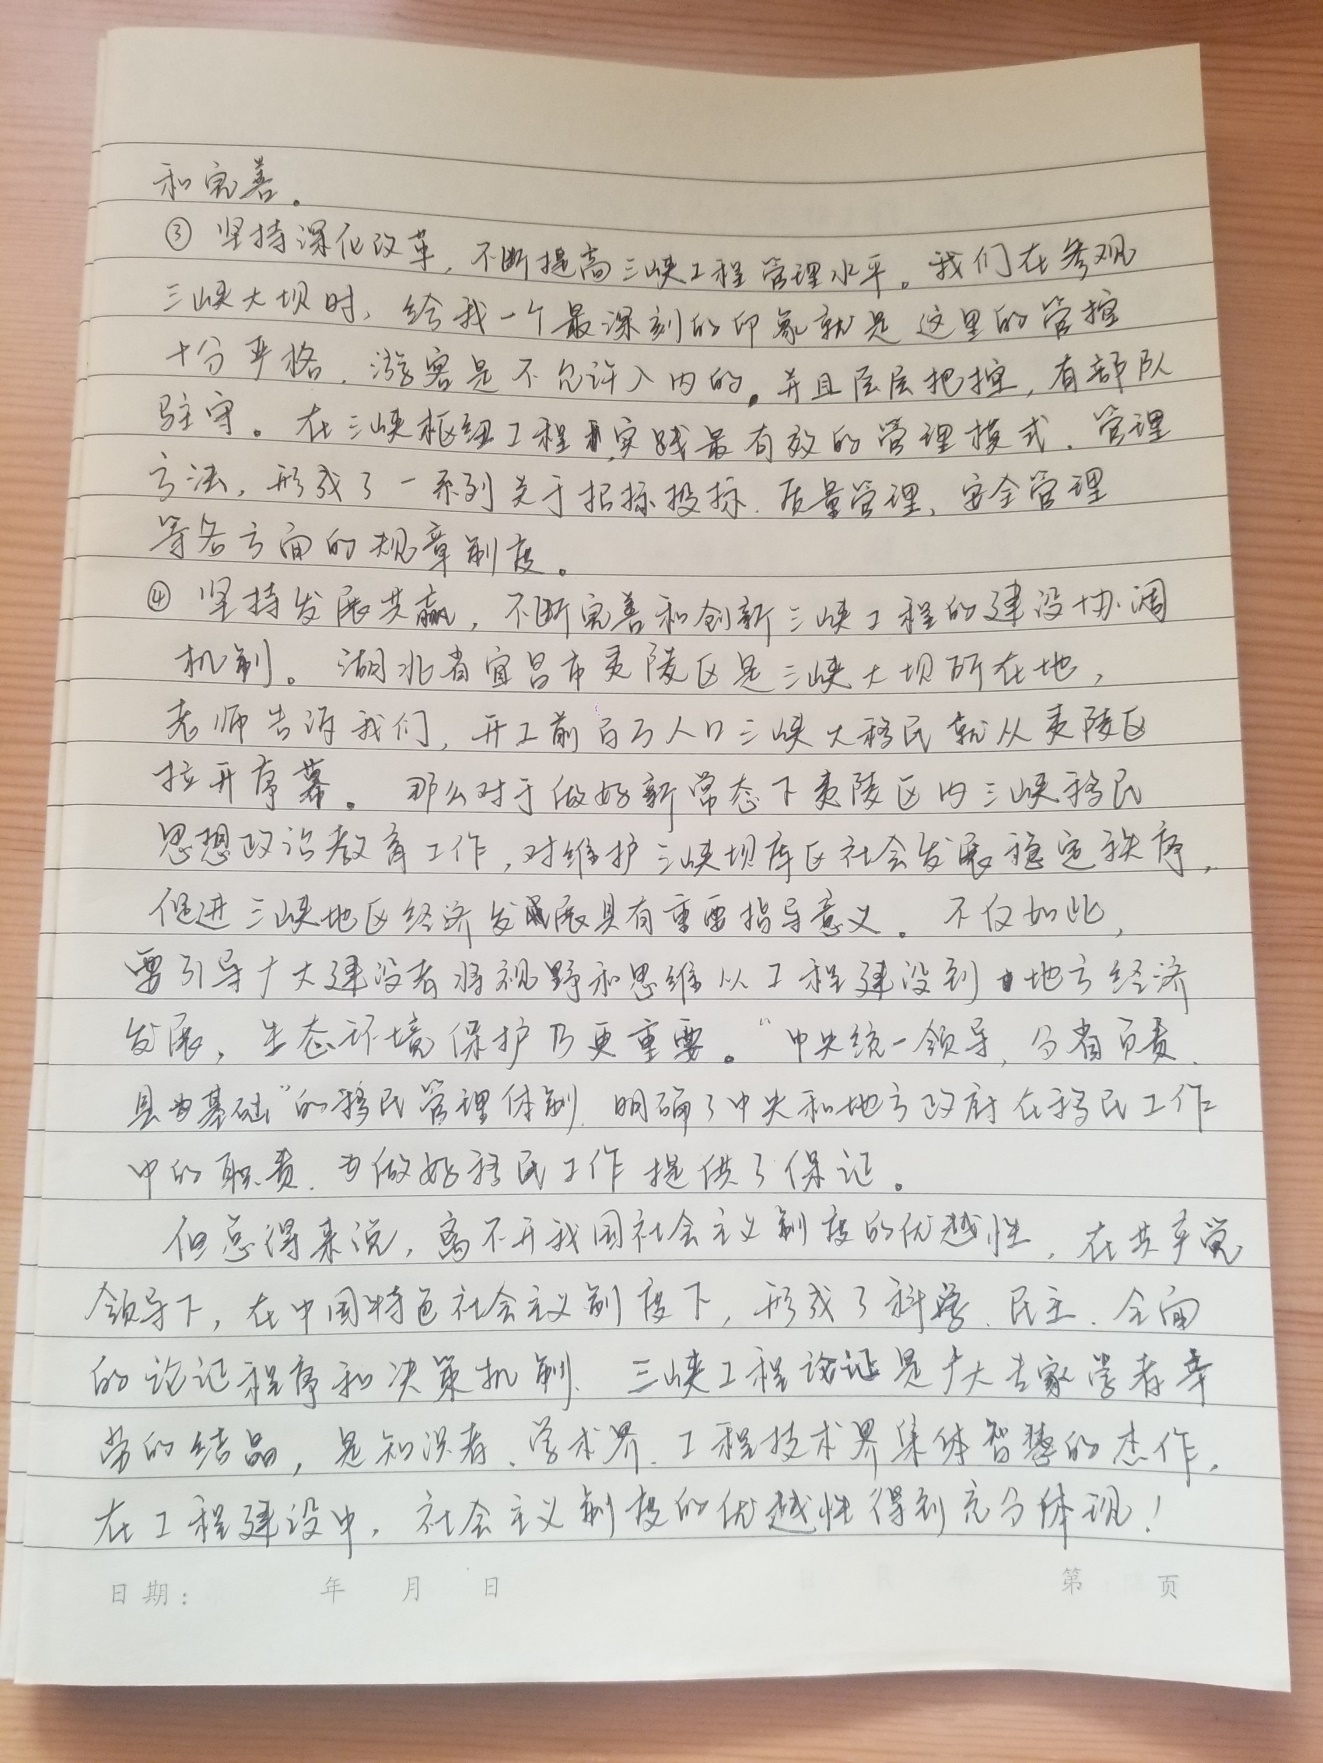 和完善。
③ 坚持深化改革，不断提高三峡工程管理水平。我们在参观
三峡大坝时，给我一个最深刻的印象就是这里的管控
十分严格，游客是不允许入内的。并且层层把控，有部队
驻守。在三峡枢纽工程，实践最有效的管理模式、管理
方法，形成了一系列关于招标投标、质量管理、安全管理
等各方面的规章制度。
④ 坚持发展共赢，不断完善和创新三峡工程的建设协调
机制。湖北省宜昌市夷陵区是三峡大坝所在地，
老师告诉我们，开工前百万人口三峡大移民就从夷陵区
拉开序幕。那么对于做好新常态下夷陵区内三峡移民
思想政治教育工作，对维护三峡坝库区社会发展稳定秩序，
促进三峡地区经济发展具有重要指导意义。不仅如此，
要引导广大建设者将视野和思维从工程建设到地方经济
发展，生态环境保护乃更重要。“中央统一领导，分省负责，
县为基础”的移民管理体制，明确了中央和地方政府在移民工作
中的职责，为做好移民工作提供了保证。
但总得来说，离不开我国社会主义制度的优越性，在共产党
领导下，在中国特色社会主义制度下，形成了科学、民主、全面
的论证程序和决策机制，三峡工程论证是广大专家学者辛
劳的结晶，是知识者、学术界、工程技术界集体智慧的杰作，
在工程建设中，社会主义制度的优越性得到充分体现！
日期： 年 月 日 第 页